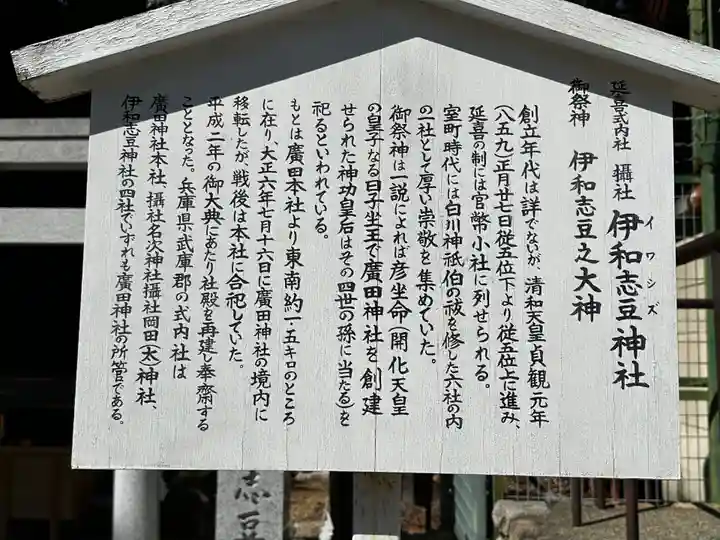 延喜式内社 攝社 伊和志豆神社
イワシズ
御祭神 伊和志豆之大神
創立年代は詳でないが、清和天皇貞観元年
(八五九)正月廿七日従五位下より従五位上に進み、
延喜の制には官幣小社に列せられる。
室町時代には白川神祇伯の祓を修した六社の内
の一社として厚い崇敬を集めていた。
御祭神は一説によれば彦坐命(開化天皇
の皇子なる日子坐王で廣田神社を創建
せられた神功皇后はその四世の孫に当たる)を
祀るといわれている。
もとは廣田本社より東南約一・五キロのところ
に在り、大正六年七月十六日に廣田神社の境内に
移転したが、戦後は本社に合祀していた。
平成二年の御大典にあたり社殿を再建し奉齋する
こととなった。兵庫県武庫郡の式内社は
廣田神社本社、攝社名次神社攝社岡田(太)神社、
伊和志豆神社の四社でいずれも廣田神社の所管である。
志豆